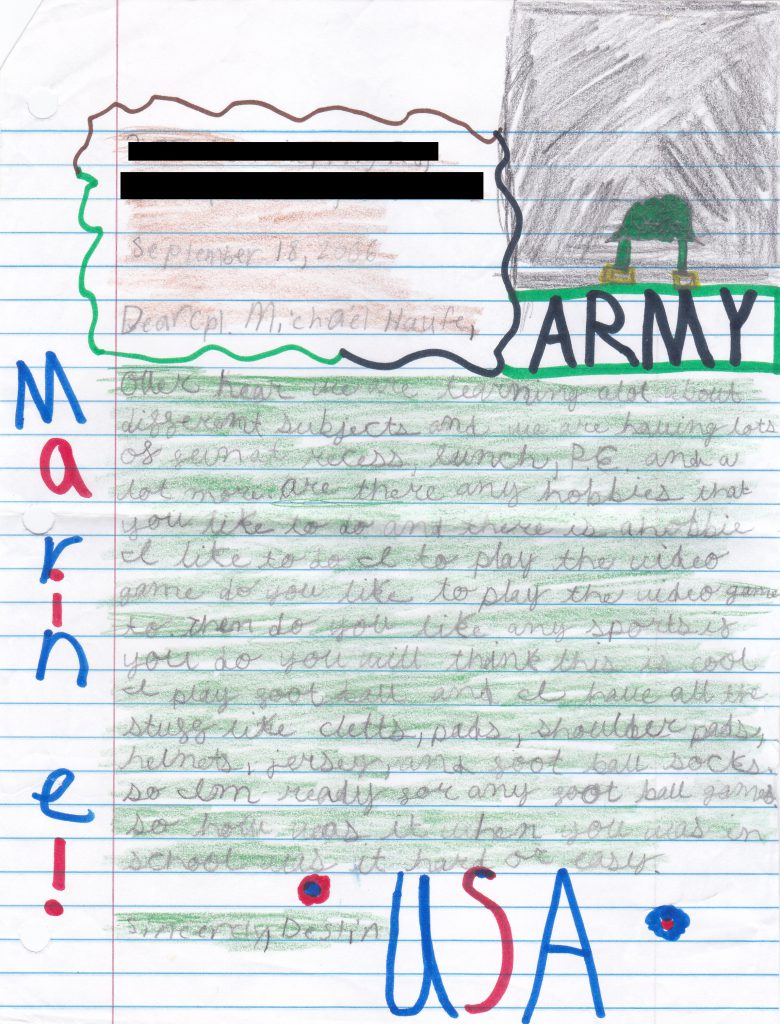 September 18, 2006
Dear Cpl. Michael Haufe,
ARMY
Marine!
Over hear we are learning alot about
different subjects and we are having lots
of fun at recess, lunch, P.E. and a
lot more. are there any hobbies that
you like to do and there is a hobbie
I like to do I to play the video
game do you like to play the video game
to. then do you like any sports if
you do you will think this is cool
I play foot ball and I have all the
stuff like cletts, pads, shoulder pads,
helmets, jersey, and foot ball socks.
so Im ready for any foot ball games
so how was it when you was in
school was it hard or easy.
Sincerely, Destin
USA